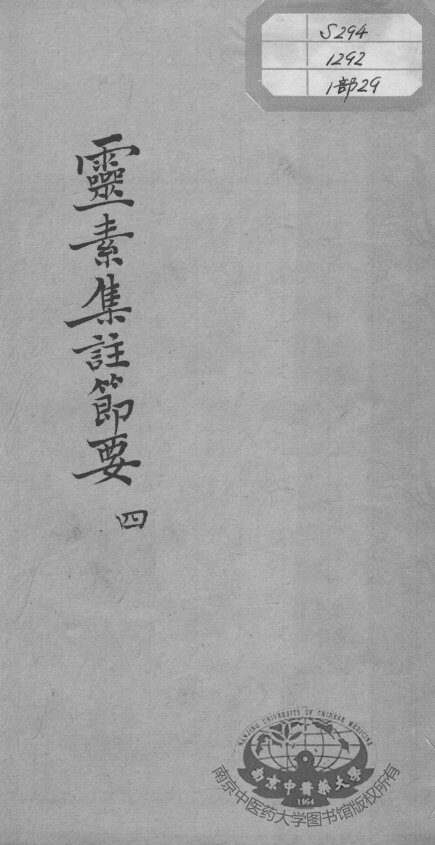 S294
1292
1部29
靈素集註節要
四
NANJING UNIVERSITY OF CHINESE MEDICINE
南京中醫藥大學
1954
南京中医药大学图书馆版权所有